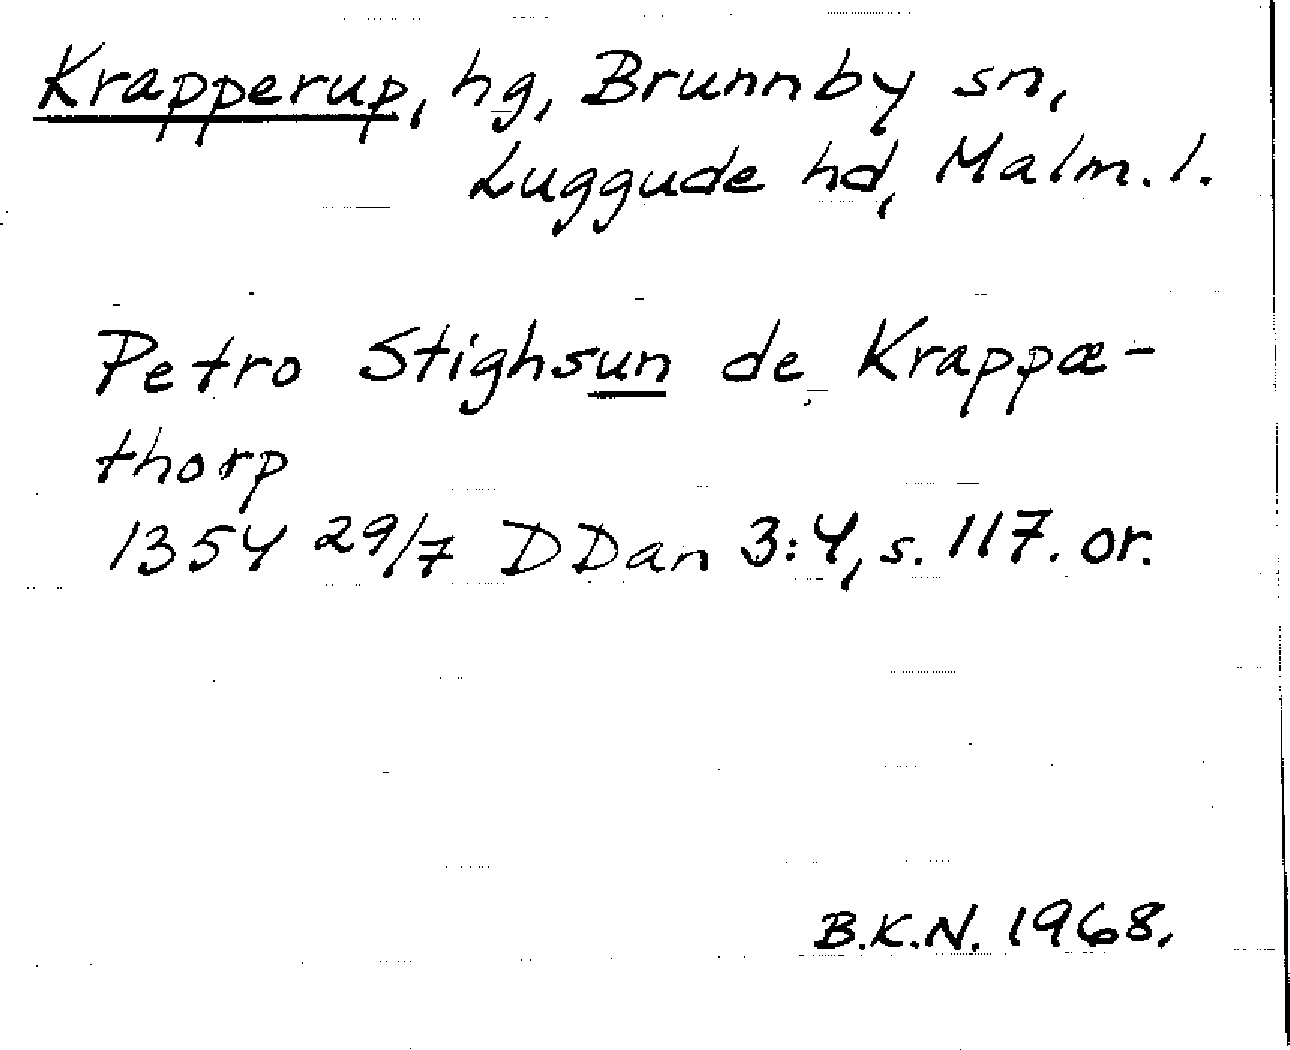 Krapperup, hg, Brunnby sn,
Luggude hd, Malm. l.
Petro Stighsun de Krappæ-
thorp
1354 29/7 DDan 3:4, s. 117. or.
B.K.N. 1968.